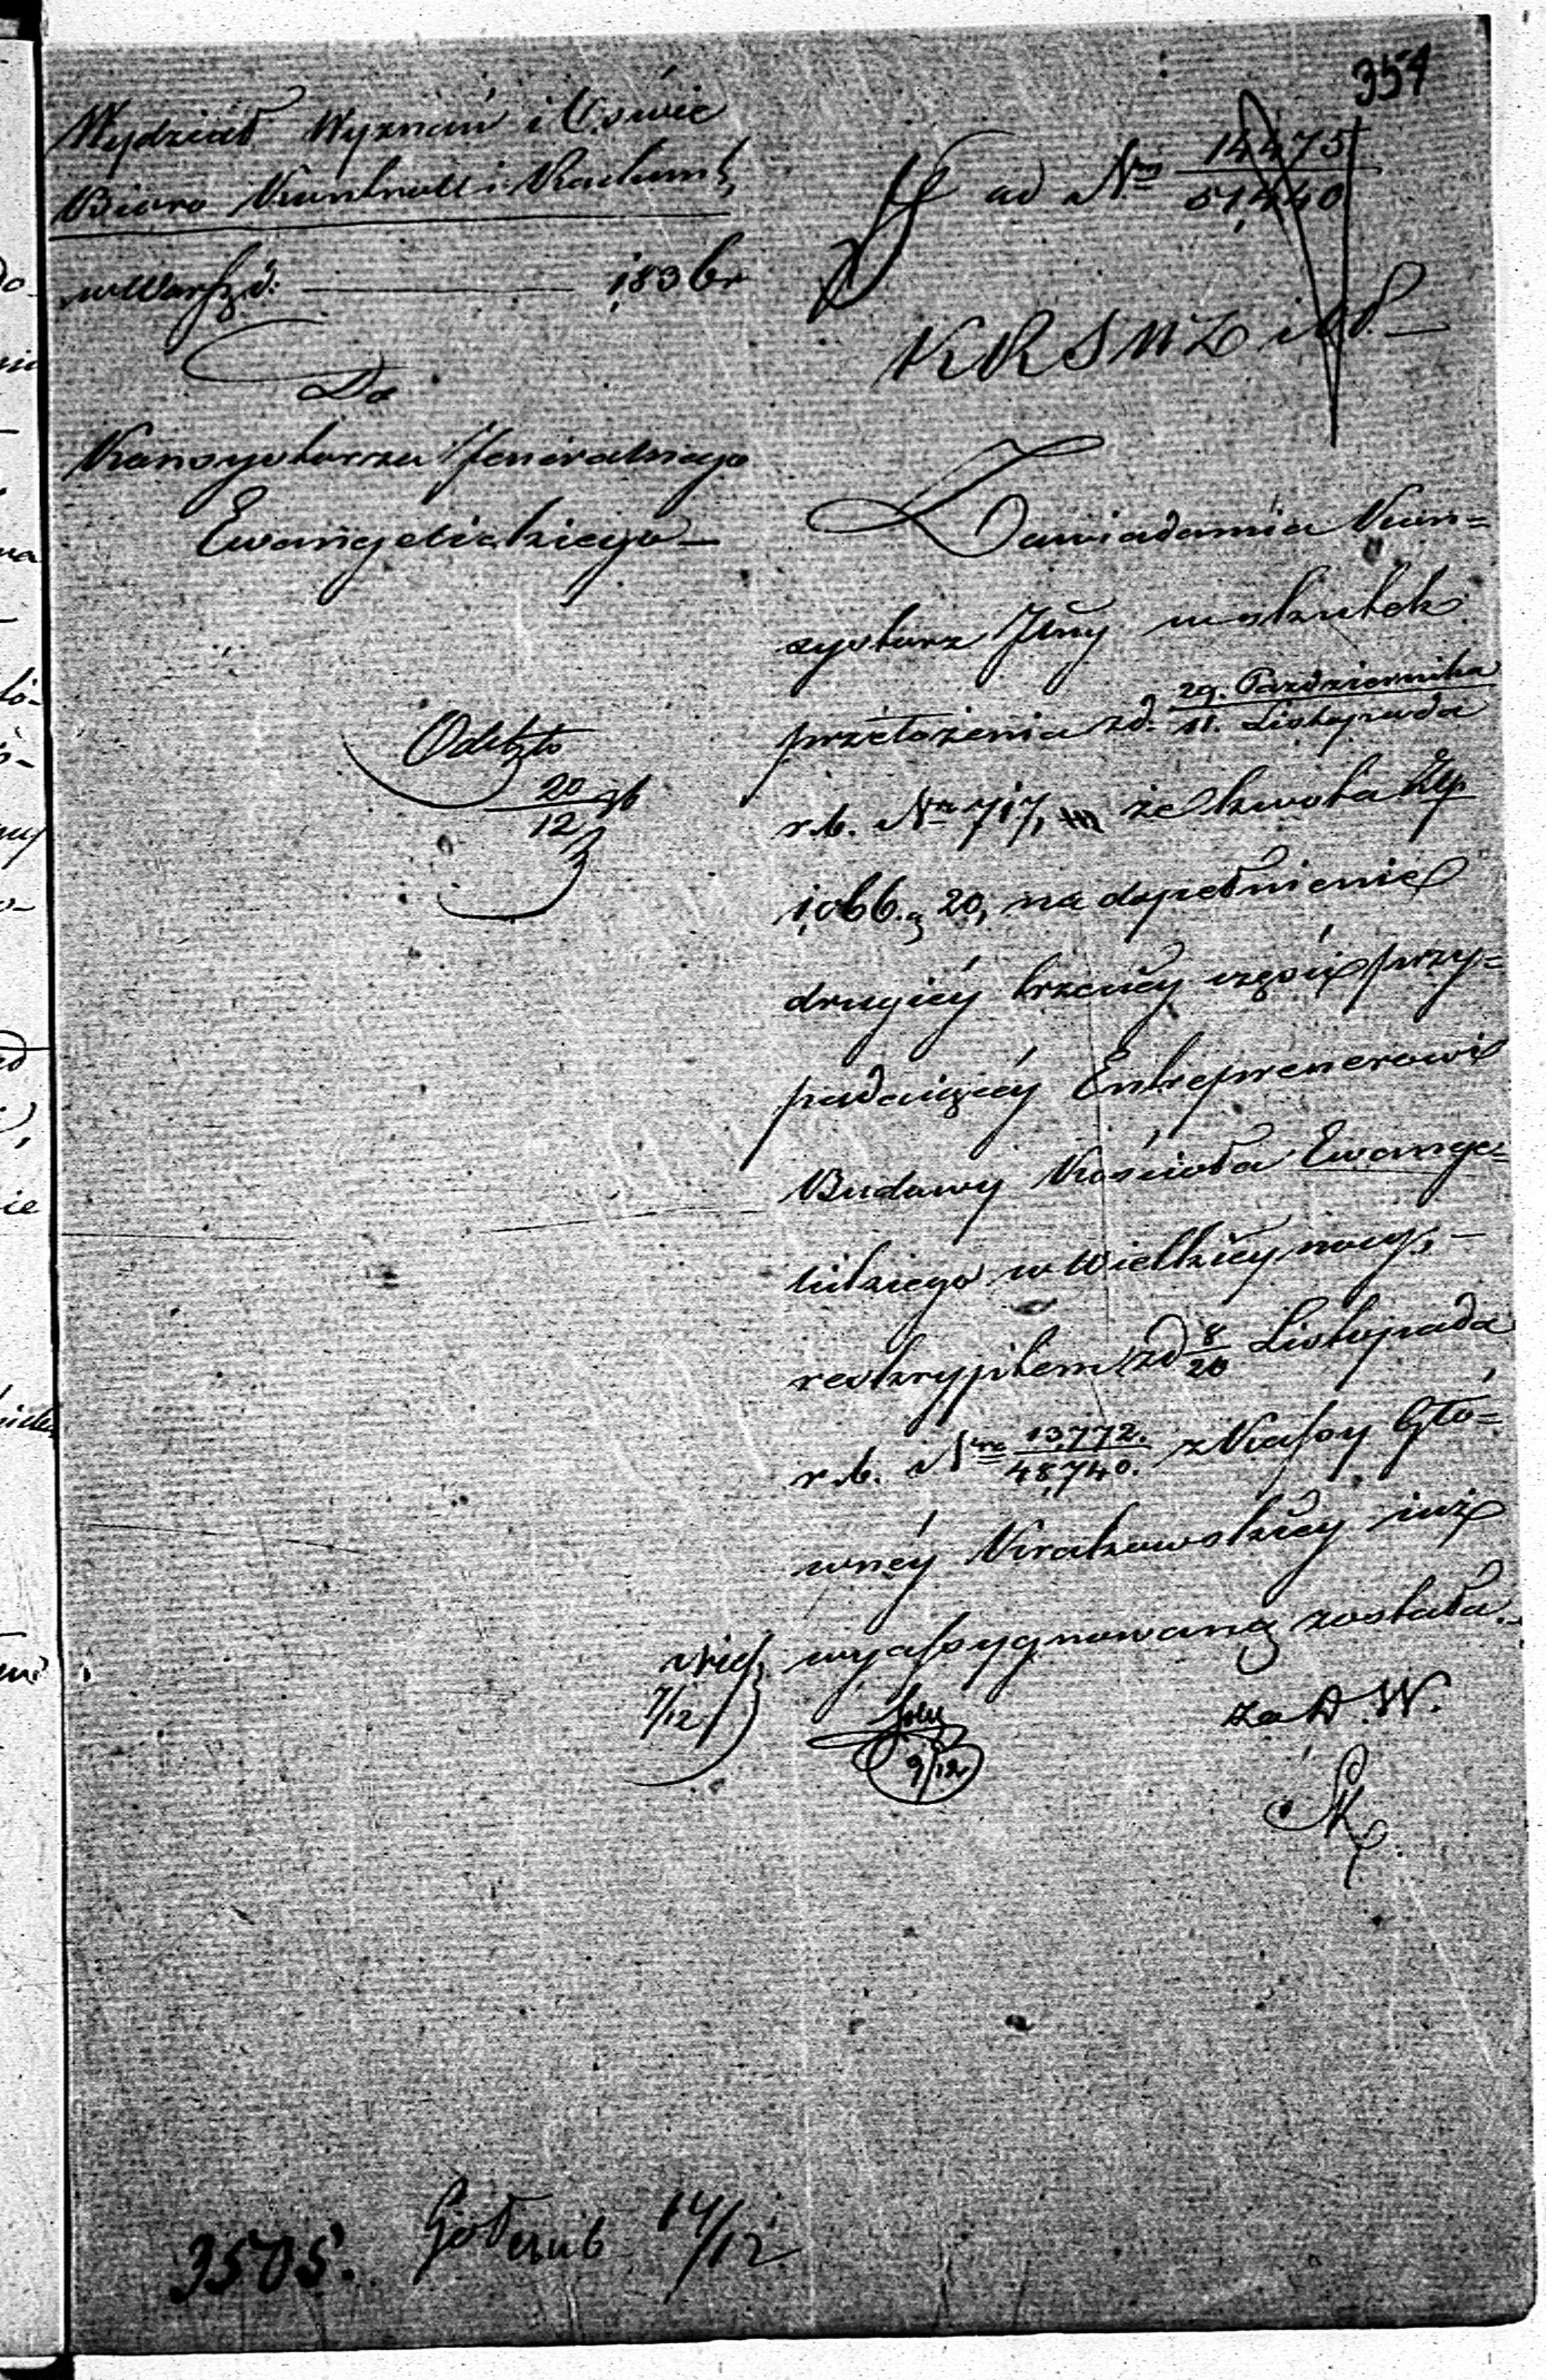 354
Wydział Wyznań i Oświec
Biuro Kontroll i Rachunk
w Warsz d: 1836 r
Do
Konsystorza Jeneralnego
Ewangelickiego
ad Nrm 14475
51,440
KRSWZ i OP.
Zawiadamia Kon=
systorz Jlny w skutek
przełożenia z d. 29. Października
11. Listopada
r. b. Nr 717, że kwota Złp
1,066. g 20, na dopełnienie
drugiéy trzeciéy części przy=
padaiącéy Entreprenerowi
Budowy Kościoła Ewange=
lickiego w Wielkiéynocy, –
reskryptem z d 8/20 Listopada
r. b. Nro 13,772.
48,740. z Kassy Głó=
wnéy Krakowskiéy iuż
wyassygnowaną została.
Odeszło
20/12 36
7/12
9/12
za D. W.
3505. Gołemb 14/12